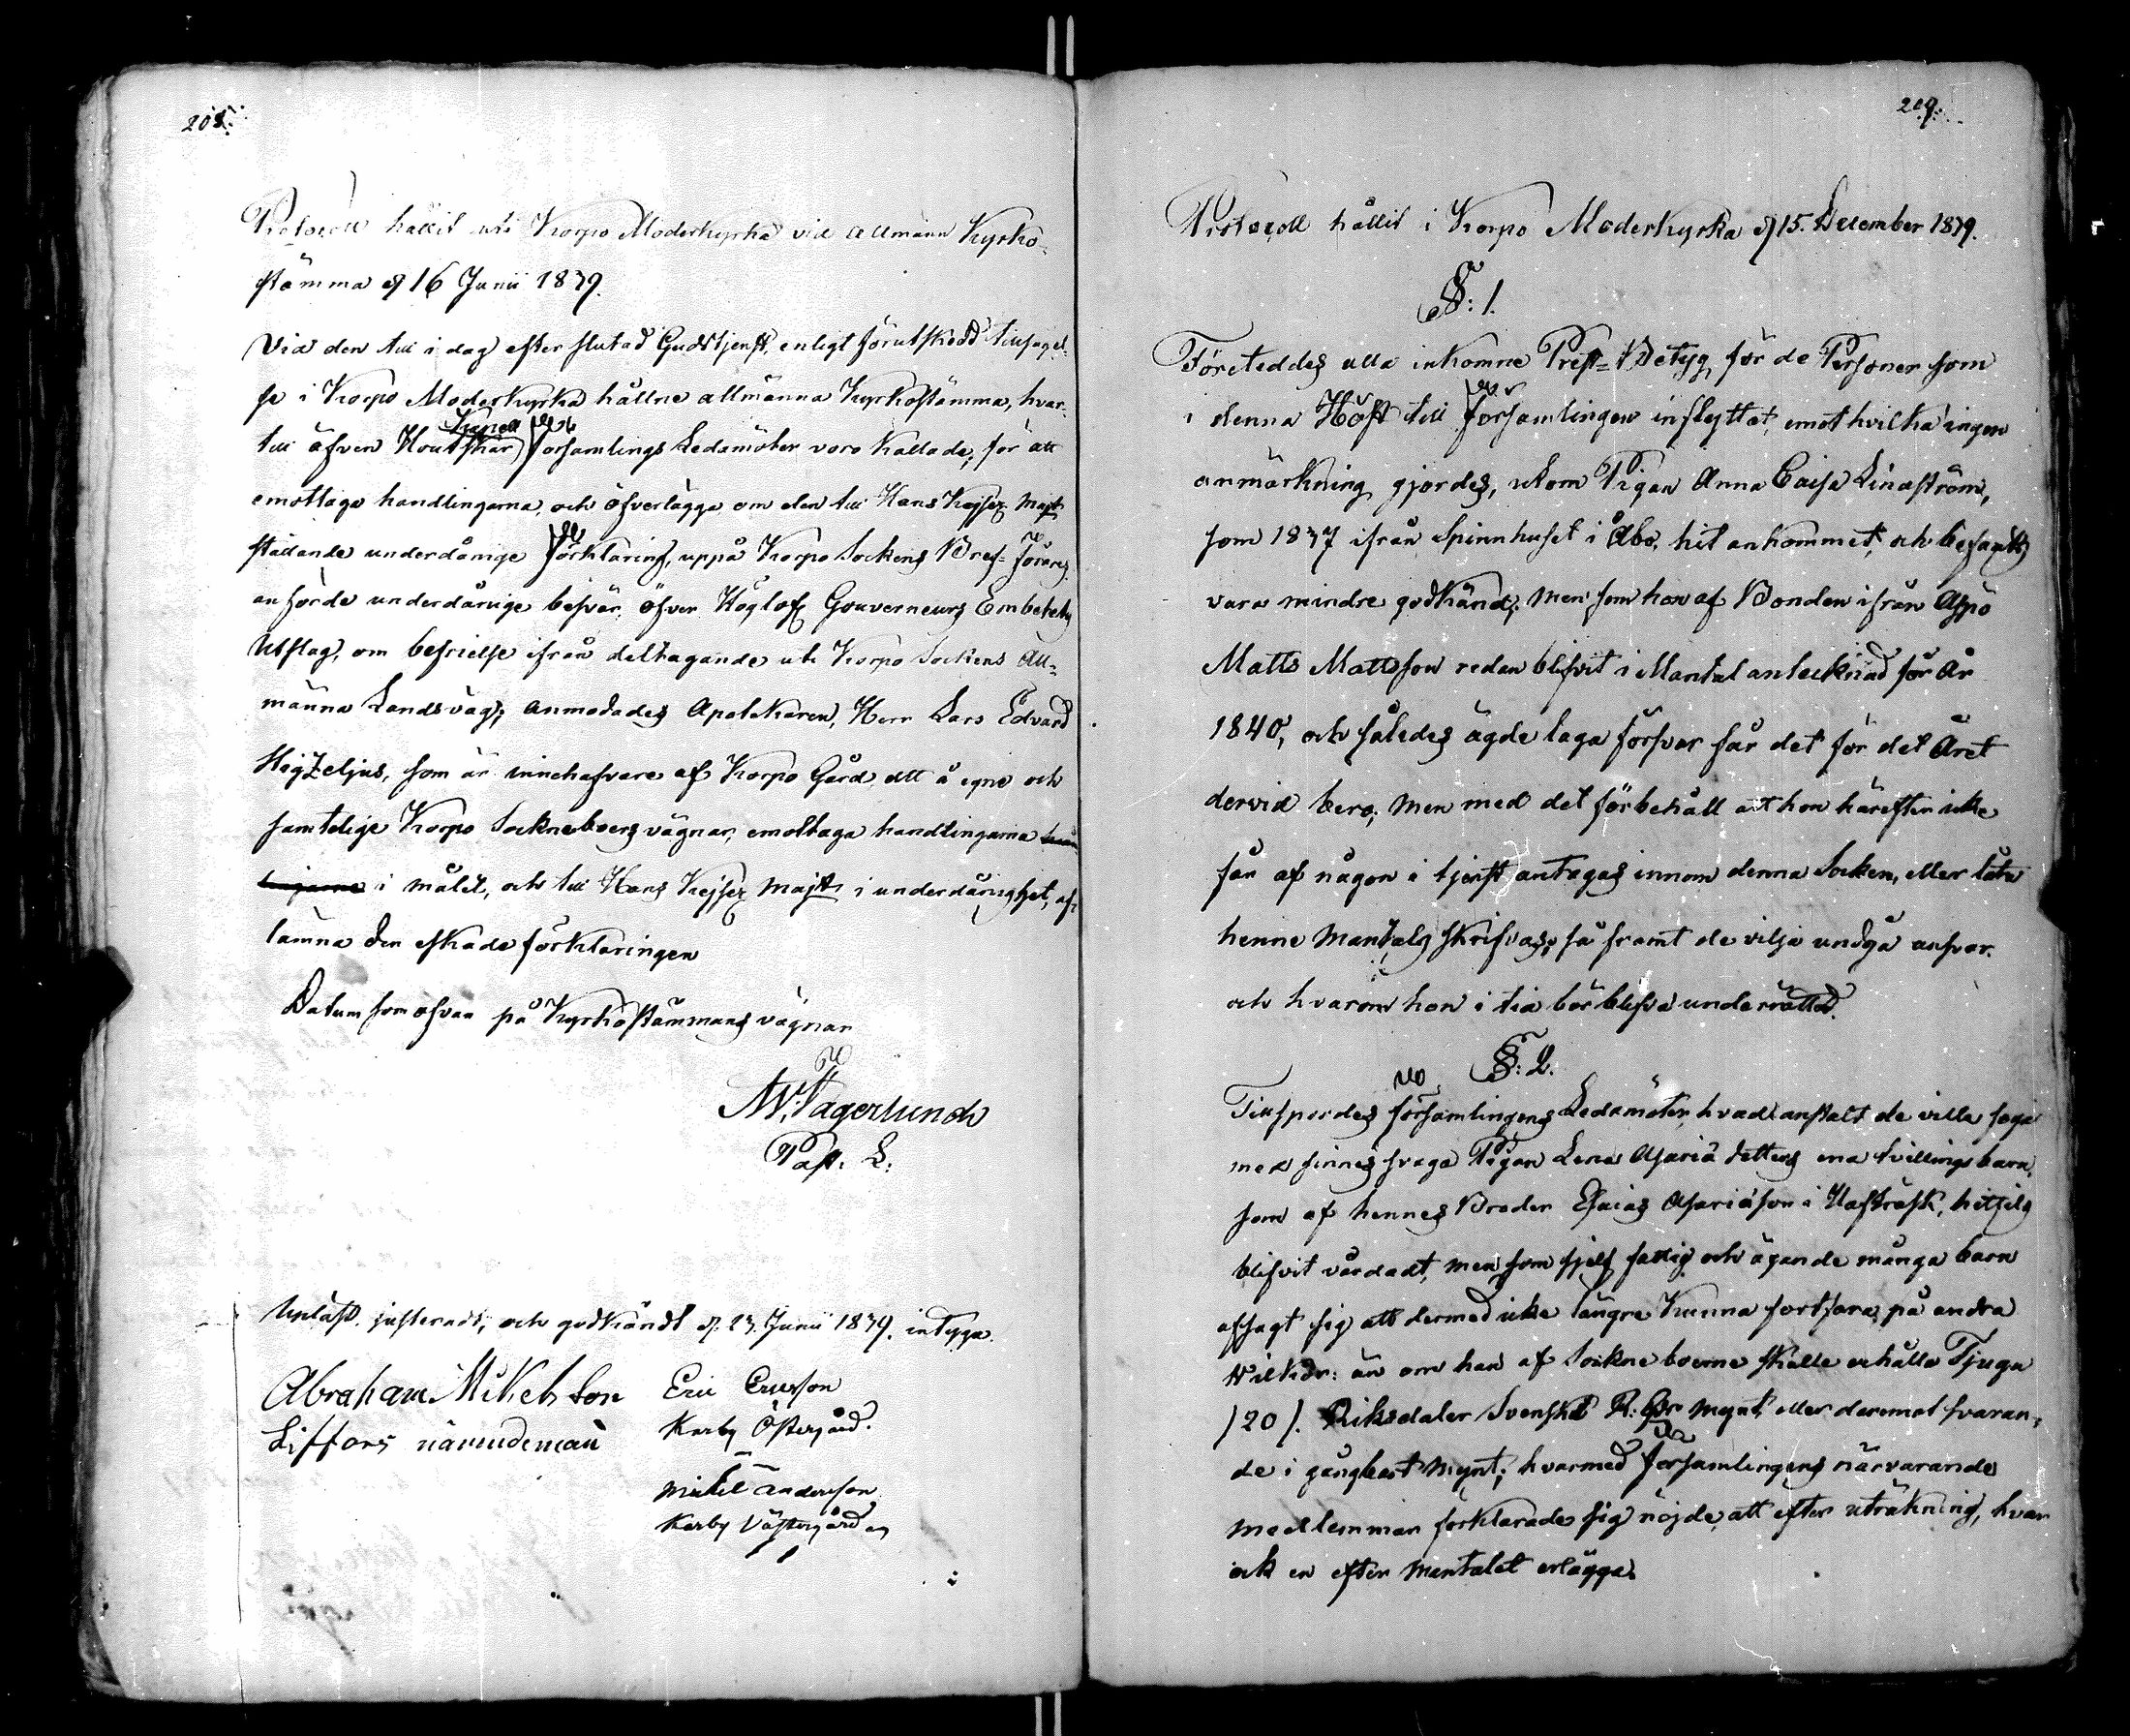 208.
Protocoll hållit uti Korpo Moderkyrka vid allmänn Kyrko-
stämma d 16 Junii 1839.
Vid den till i dag efter slutad Gudstjenst, enligt förutskedd tillsägel-
se i Korpo Moderkyrka hållne allmänna Kyrkostämma, hvar-
till äfven Houtskär Kapell Församlings Ledamöter voro kallade, för att
emottaga handlingarna, och öfverlägga om den till Hans Kejser Majt
ställande underdånige Förklaring, uppå Korpo Sockens Bref-Förares
anförde underdånige besvär öfver Höglof Gouverneurs Embetets
Utslag, om befrielse ifrån deltagande uti Korpo Sockens All-
männa Landsväg; anmodades Apothekaren, Herr Lars Edvard
som är innehafvare af Korpo Gård, att å egne och
samtelige Korpo Sockneboers vägnar, emottaga handlingarna
i målet, och till Hans Kejser Majt i underdånighet, af-
lämna den eskade förklaringen
Datum som ofvan på Kyrkostämmans vägnar
A W Fagerlund
Past. L:
Upläst, justeradt, och godkändt d. 23. Junii 1839. intyga.
Abraham Mikelsson
Liffors nämndeman
Eric Ersson
Korby Östergård.
Mickel Andersson
Korby Västergård
209.
Protocoll hållit i Korpo Moderkyrka d 15. December 1839.
§: 1.
Företeddes alla inkomne Prest-Betyg för de Personer som
i denna Höst till Församlingen inflyttat, emot hvilka ingen
anmärkning gjordes, utom Pigan Anna Caisa Lindström,
som 1837 ifrån Spinnhuset i Åbo, hit ankommet, och befantts
vara mindre godkänd; men som hon af Bonden ifrån Aspö
Matts Mattsson redan blifvit i Mantal antecknad för År
1840, och således ägde laga försvar får det för det Året
dervid bero; men med det förbehåll att hon härefter icke
får af någon i tjenst antagas innom denna Socken, eller låta
henne Mantals skrifvas, så framt de vilja undgå ansvar.
och hvarom hon i tid bör blifva underrättad.
§: 2.
Tillspordes Församlingens Ledamöter, hvad anstalt de ville foga
med sinnes svaga Pigan Lena Asariä dotters ena tvillings barn,
som af hennes Broder Esaias Asariäson i Kafträsk, hittils
blifvit vårdadt, men som sjelf fattig och ägande många barn
afsagt sig att dermed icke längre kunna fortfara, på andra
vilkår: än om han af Sockne boerne skulle erhålla Tjugu
/20/. Riksdaler Svenskt R: Gs mynt, eller deremot svaran-
de i gångbart Mynt; hvarmed Församlingens närvarande
medlemmar förklarade sig nöjde, att efter uträkning, hvar
och en efter Mantalet erlägga.